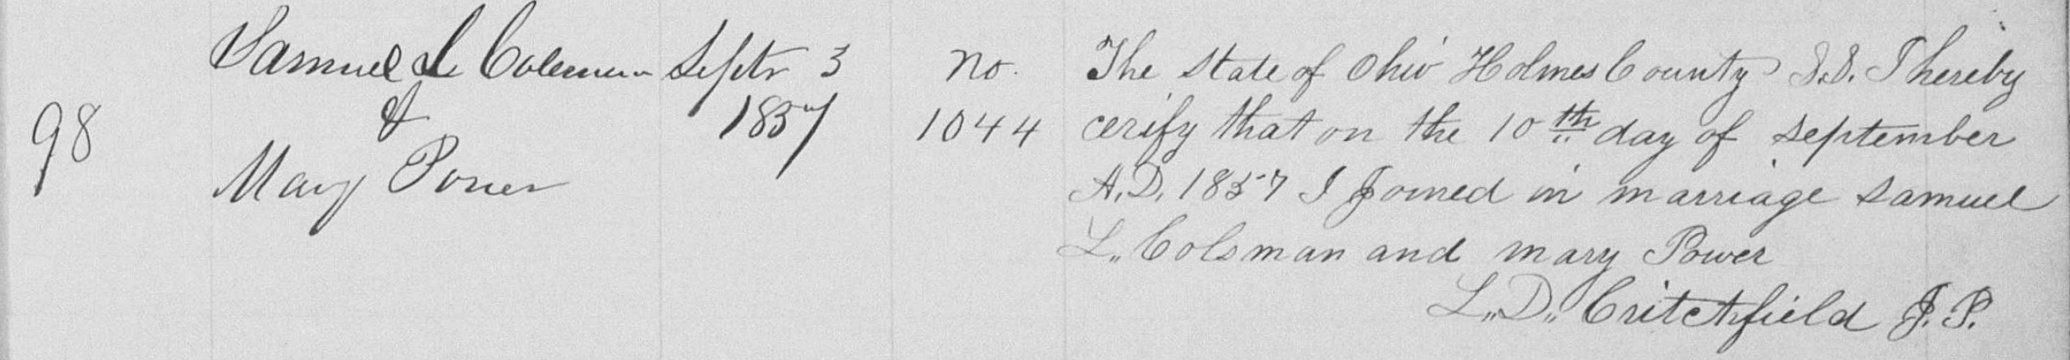 98
Samuel L Coleman
&
Mary Power
Septr 3
1857
No.
1044
The State of Ohio Holmes County S.S. I hereby
cerify that on the 10th day of September
A.D. 1857 I Joined in marriage Samuel
L. Colsman and mary Power
L. D. Critchfield J. P.